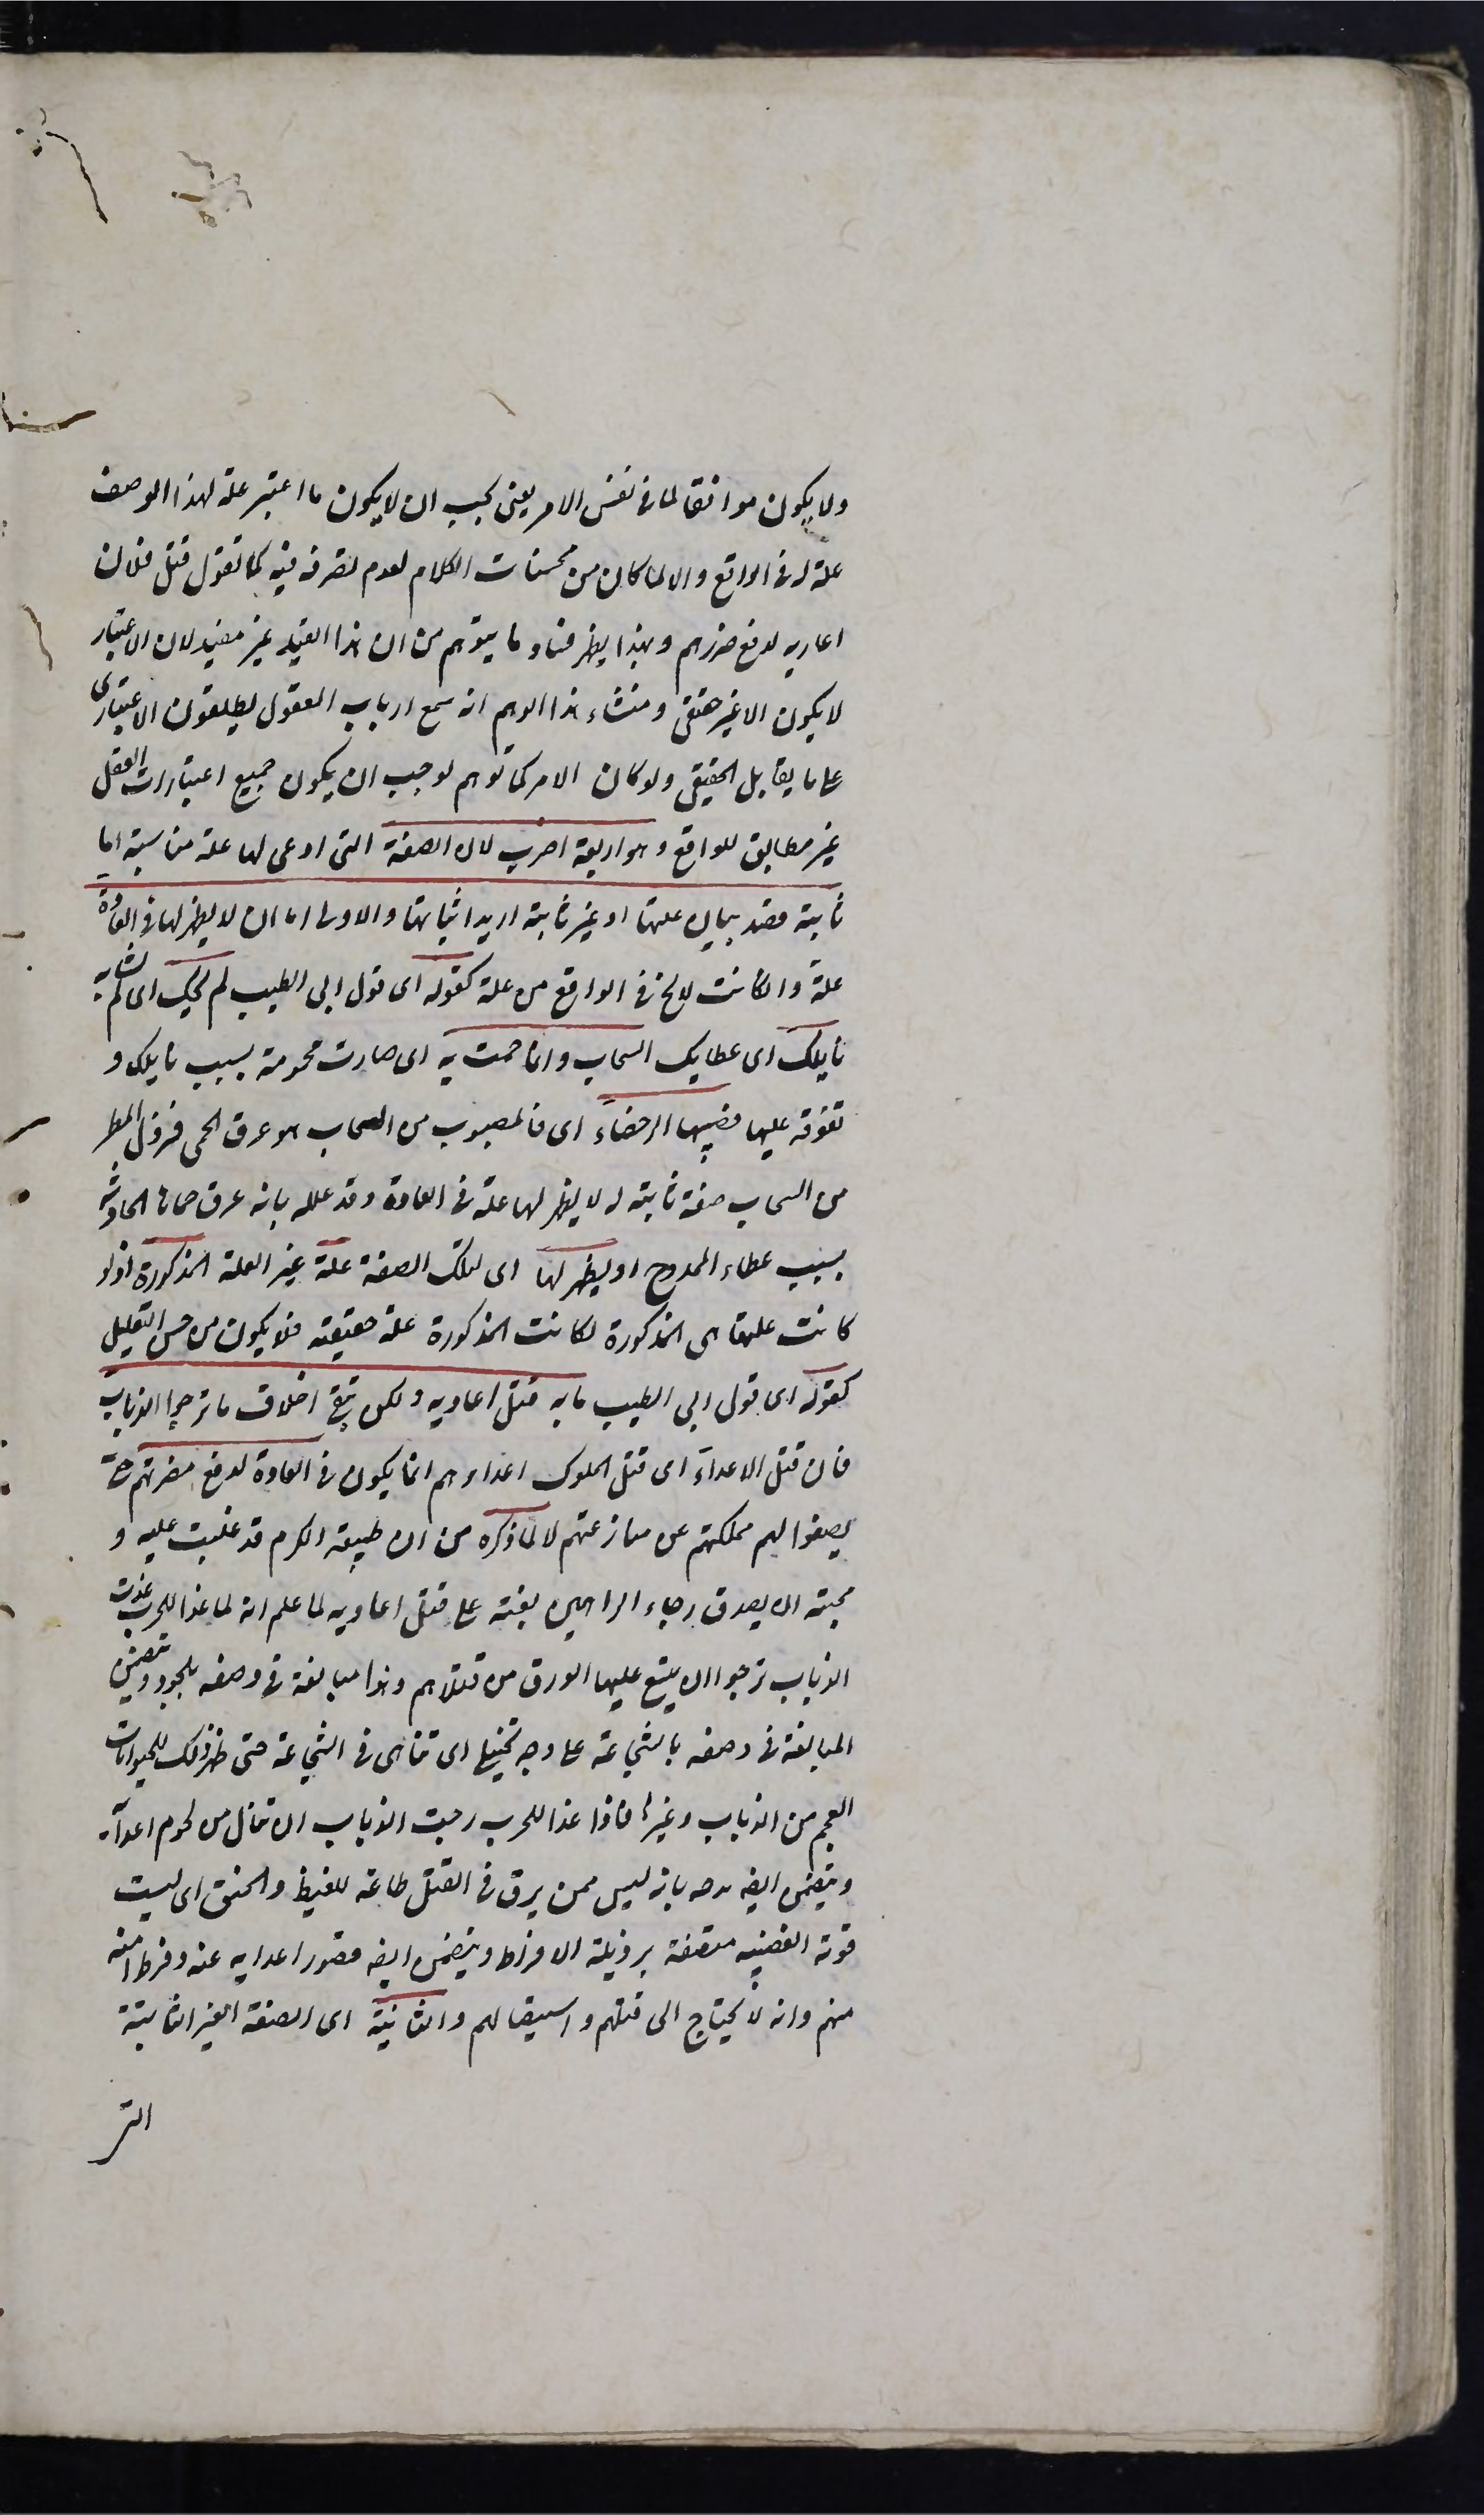 ولا يكون موافقا لما فى نفس الامر يعنى يجب ان لا يكون ما اعتبر علة لهذا الوصف
علة له فى الواقع والا لما كان من محسنات الكلام لعدم تصرف فيه كما تقول قتل فلان
اعاديه لدفع ضررهم وبهذا يظهر فساد ما يتوهم من ان هذا القيد غير مفيد لان الاعتبار
لا يكون الا غير حقيقى ومنشاء هذا الوهم انه سمع ارباب المعقول يطلقون الاعتبارى
على ما يقابل الحقيقى ولو كان الامر كما توهم لوجب ان يكون جميع اعتبارات العقل
غير مطابق للواقع وهو اربعة اضرب لان الصفة التى ادعى لها علة مناسبة اما
ثابتة قصد بيان علتها او غير ثابتة اريد اثباتها والاولى اما ان لا يظهر لها فى العادة
علة وان كانت لا يخ فى الواقع من علة كقوله اى قول ابى الطيب لم يحك اى لم يشابه
نايلك اى عطايك السحاب وانما حمت به اى صارت محمومة بسبب نايلك و
تفوقه عليها فصبيبها الرحضاء اى فالمصبوب من السحاب هو عرق الحمى فنزول المطر
من السحاب صفة ثابتة له لا يظهر لها علة فى العادة وقد علله بانه عرق حماها الحادثة
بسبب عطاء الممدوح او يظهر لها اى لتلك الصفة علة غير العلة المذكورة اذ لو
كانت علتها هى المذكورة لكانت المذكورة علة حقيقية فلا يكون من حسن التعليل
كقوله اى قول ابى الطيب ما به قتل اعاديه ولكن يتقى اخلاف ما ترجوا الذياب
فان قتل الاعداء اى قتل الملوك اعداءهم انما يكون فى العادة لدفع مضرتهم حتى
يصفوا لهم مملكتهم عن منازعتهم لا لما ذكره من ان طبيعة الكرم قد غلبت عليه و
محبة ان يصدق رجاء الراجين بعثته على قتل اعاديه لما علم انه لما غدا للحرب غدت
الذياب ترجوا ان يتسع عليها الورق من قتلاهم وهذا مبالغة فى وصفه بالجود ويتضمن
المبالغة فى وصفه بالشجاعة على وجه تخييلى اى تناهى فى الشجاعة حتى ظهر ذلك للحيوانات
العجم من الذياب وغيرها فاذا غدا للحرب رجت الذياب ان تنال من لحوم اعدآئه
ويتضمن ايضا مدحه بانه ليس ممن يسرف فى القتل طاعة للغيظ والحنق اى ليست
قوته الغضبية متصفة برذيلة الافراط ويتضمن ايضا قصور اعدايه عنه وفرط امنه
منهم وانه لا يحتاج الى قتلهم واستيصالهم والثانية اى الصفة الغير الثابتة
التى